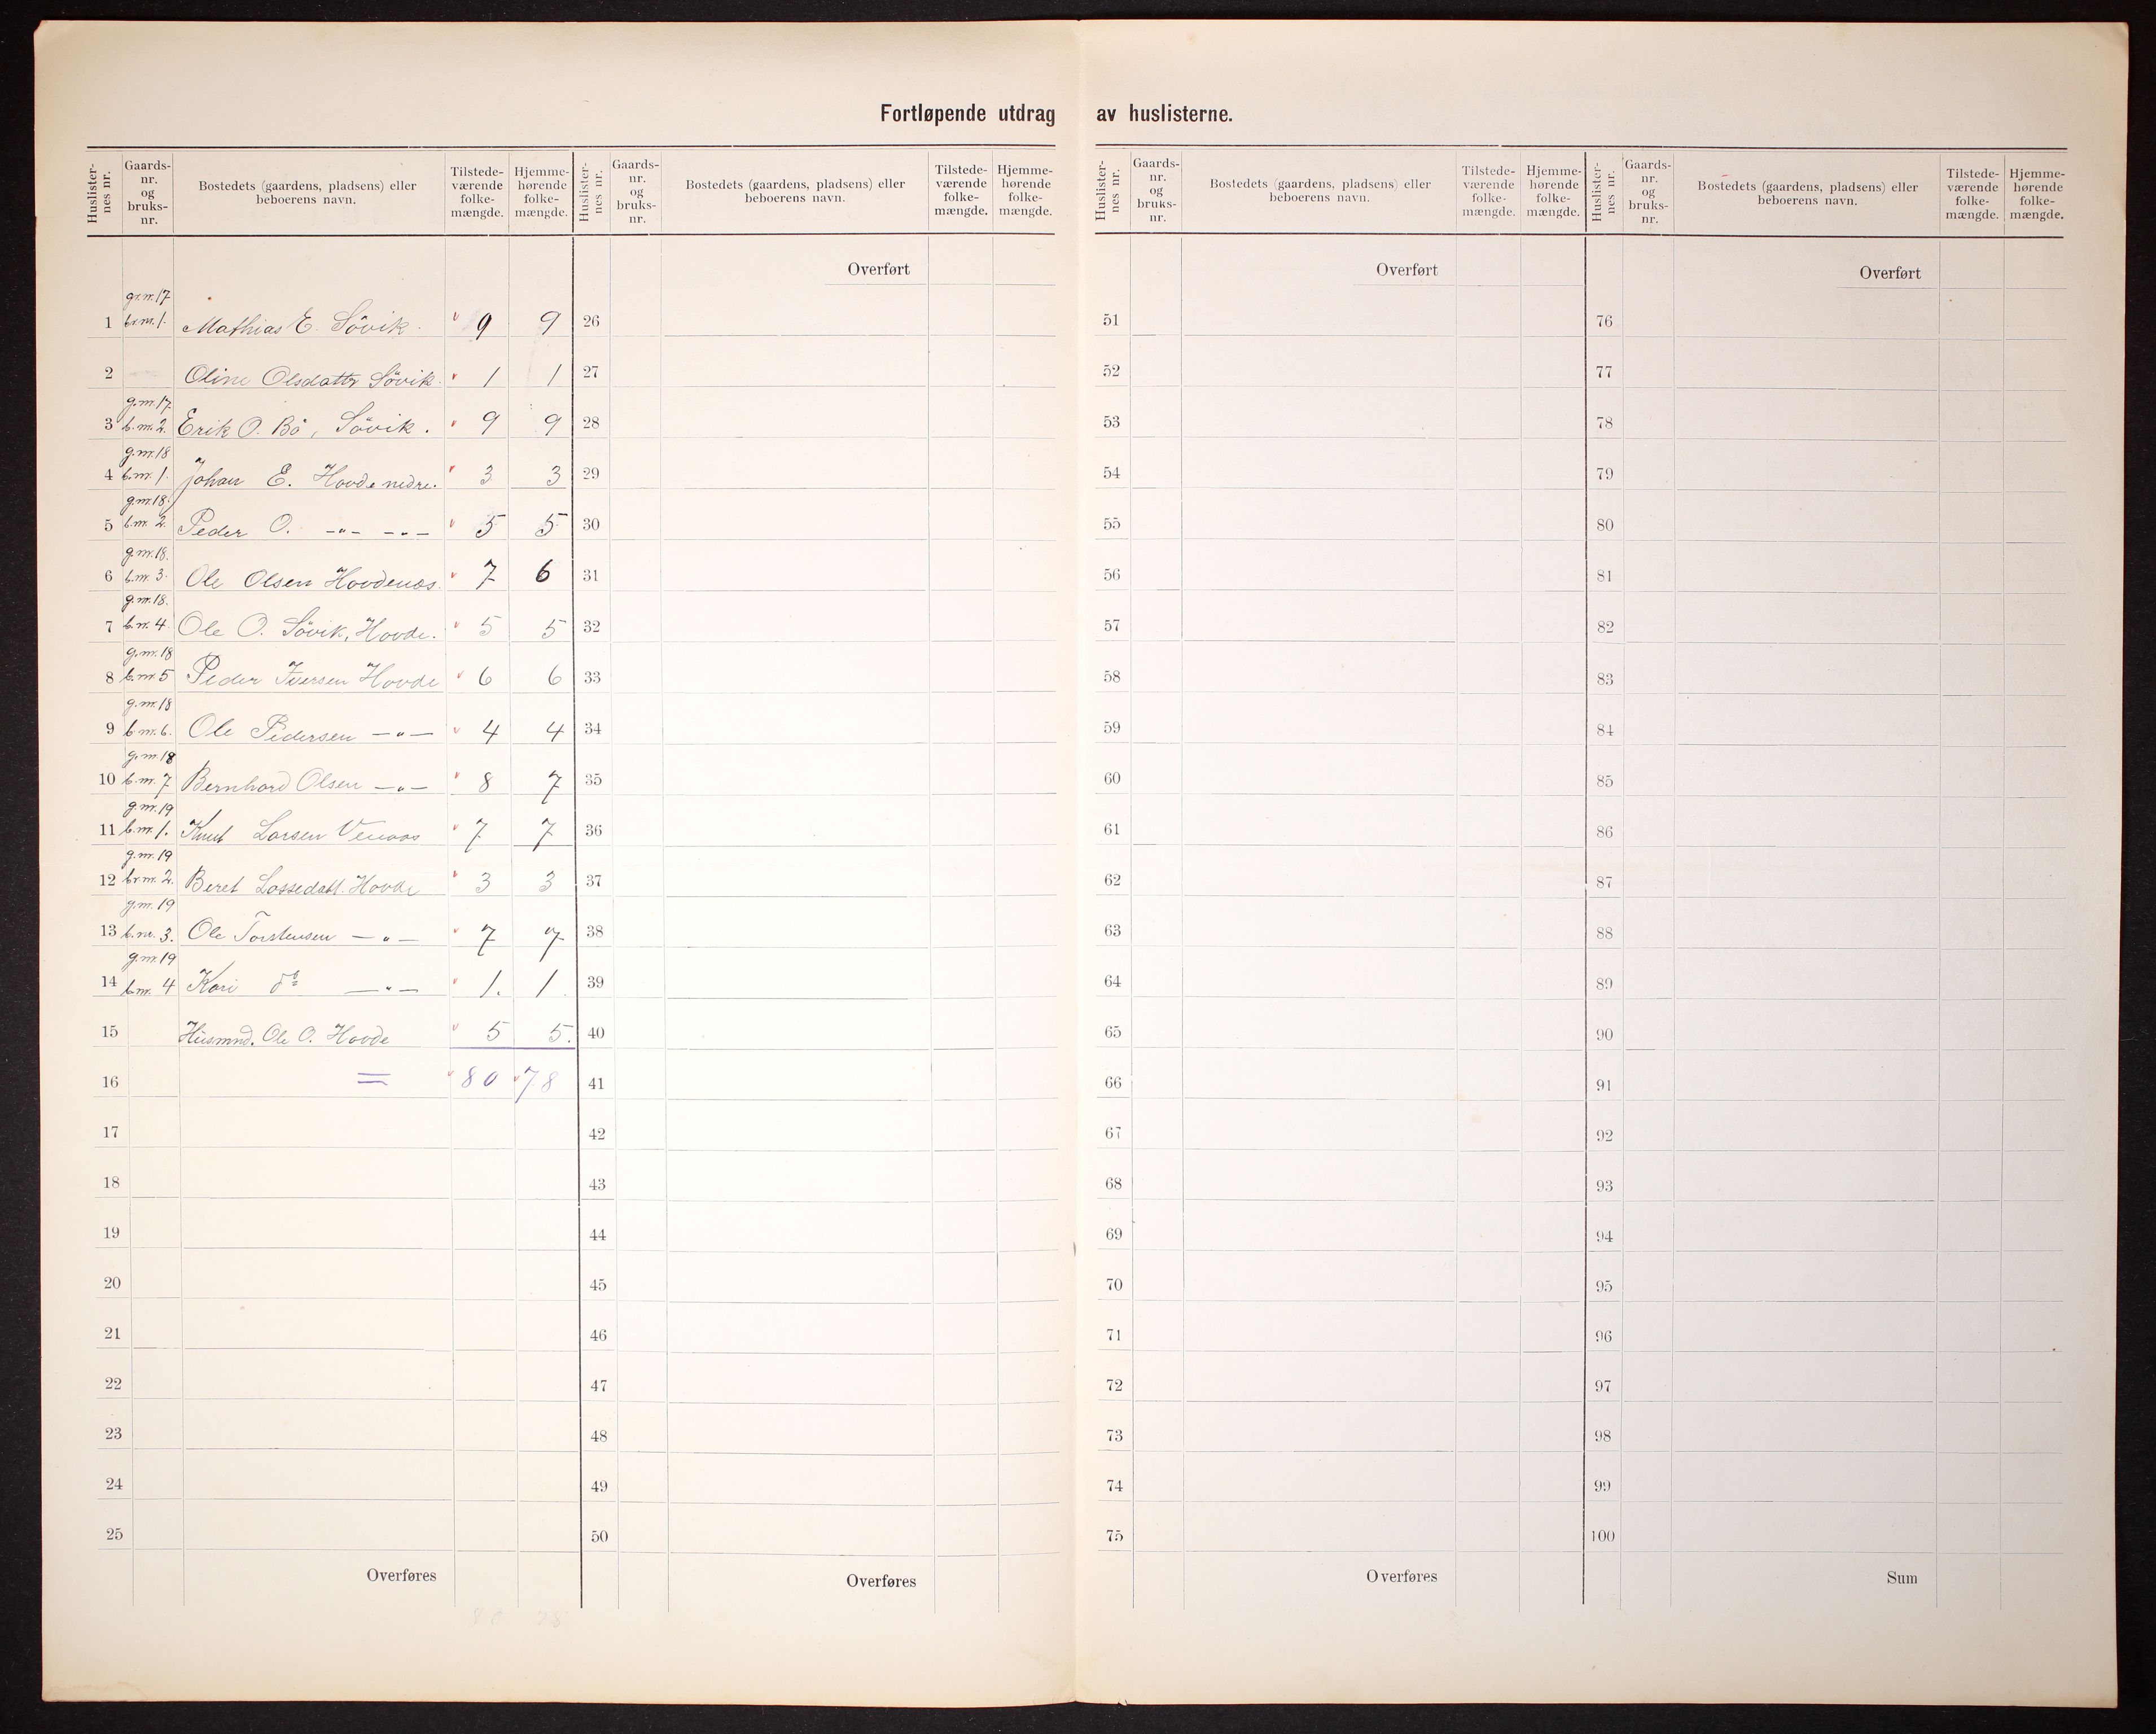 Fortløpende utdrag av huslisterne.
Huslister-nes nr. | Gaards-nr. og bruks-nr. | Bostedets (gaardens, pladsens) eller beboerens navn. | Tilstede-værende folke-mængde. | Hjemme-hørende folke-mængde.
g.nr. 17
1 br.nr. 1. Mathias E. Sövik. 9 9
2 Oline Olsdattr Sövik. 1 1
g.nr. 17.
3 b.nr. 2. Erik O. Bö, Sövik. 9 9
g.nr. 18
4 b.nr. 1. Johan E. Hovde nedre. 3 3
g.nr. 18.
5 b.nr. 2. Peder O. -"- -"- 5 5
g.nr. 18.
6 b.nr. 3. Ole Olsen Hovdenæs. 7 6
g.nr. 18.
7 b.nr. 4. Ole O. Sövik, Hovde. 5 5
g.nr. 18
8 b.nr. 5 Peder Iversen Hovde 6 6
g.nr. 18
9 b.nr. 6. Ole Pedersen -"- 4 4
g.nr. 18
10 b.nr. 7 Bernhard Olsen -"- 8 7
g.nr. 19
11 b.nr. 1. Knut Larsen Venaas 7 7
g.nr. 19
12 br.nr. 2. Beret Lassedatt. Hovde 3 3
g.nr. 19
13 b.nr. 3. Ole Torstensen -"- 7 7
g.nr. 19
14 b.nr. 4 Kari do -"- 1. 1.
15 Husmnd. Ole O. Hovde 5 5.
16 = 80 78
17
18
19
20
21
22
23
24
25
Overføres
Huslister-nes nr. | Gaards-nr. og bruks-nr. | Bostedets (gaardens, pladsens) eller beboerens navn. | Tilstede-værende folke-mængde. | Hjemme-hørende folke-mængde.
Overført
26
27
28
29
30
31
32
33
34
35
36
37
38
39
40
41
42
43
44
45
46
47
48
49
50
Overføres
Huslister-nes nr. | Gaards-nr. og bruks-nr. | Bostedets (gaardens, pladsens) eller beboerens navn. | Tilstede-værende folke-mængde. | Hjemme-hørende folke-mængde.
Overført
51
52
53
54
55
56
57
58
59
60
61
62
63
64
65
66
67
68
69
70
71
72
73
74
75
Overføres
Huslister-nes nr. | Gaards-nr. og bruks-nr. | Bostedets (gaardens, pladsens) eller beboerens navn. | Tilstede-værende folke-mængde. | Hjemme-hørende folke-mængde.
Overført
76
77
78
79
80
81
82
83
84
85
86
87
88
89
90
91
92
93
94
95
96
97
98
99
100
Sum